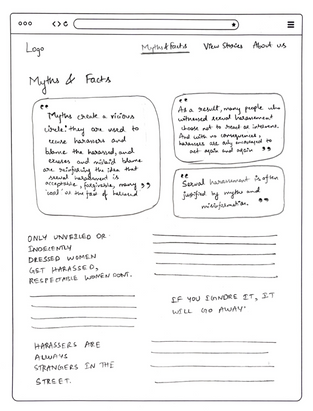 Logo
Myths & Facts
View Stories
About us
Myths & Facts
"
Myths create a vicious
circle: they are used to
excuse harassers and
blame the harassed, and
excuses and misled blame
are reinforcing the idea that
sexual harassment is
acceptable, forgivable, many
as the fact of harassed
"
"
As a result, many people who
witnessed sexual harassment
choose not to react or intervene.
And with no consequences,
harassers are only encouraged to
act again and again
"
"
Sexual harassment is often
justified by myths and
misinformation.
"
ONLY UNVEILED OR
INDECENTLY
DRESSED WOMEN
GET HARASSED,
RESPECTABLE WOMEN DONT.
IF YOU IGNORE IT, IT
WILL GO AWAY
HARASSERS ARE
ALWAYS
STRANGERS IN THE
STREET.